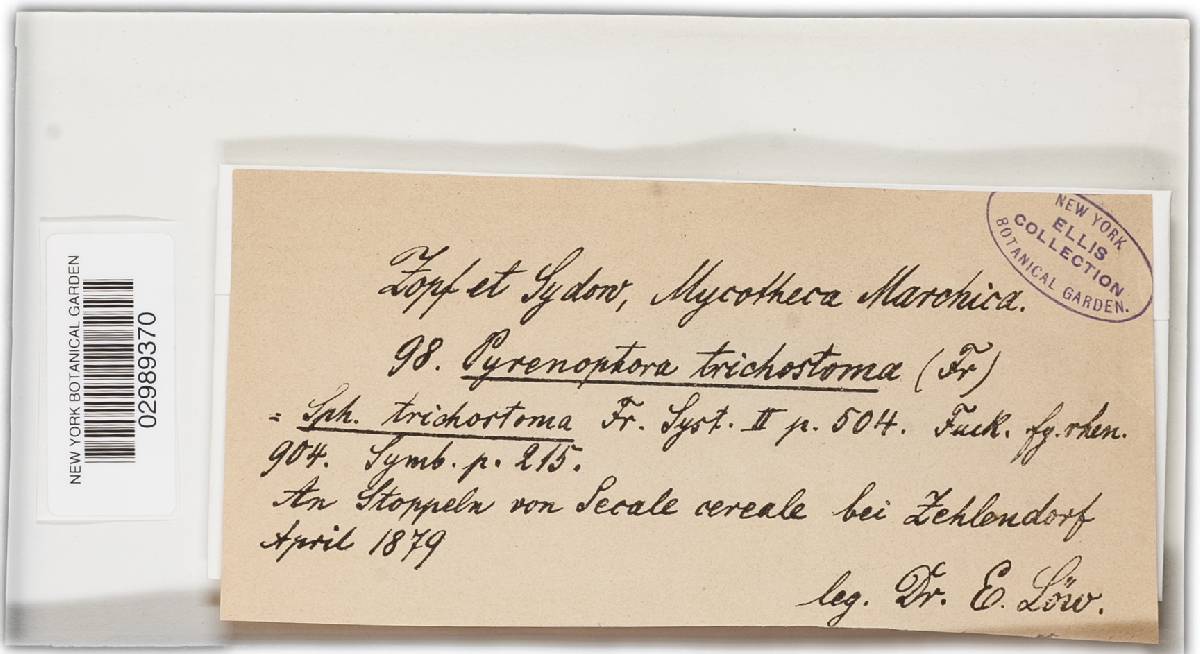 NEW YORK BOTANICAL GARDEN
02989370
NEW YORK
ELLIS
COLLECTION
BOTANICAL GARDEN.
Zopf et Sydow, Mycotheca Marchica.
98. Pyrenophora trichostoma (Fr)
= Sph. trichostoma Fr. Syst. II p. 504. Fuck. fg. rhen.
904. Symb. p. 215.
An Stoppeln von Secale cereale bei Zehlendorf
April 1879
leg. Dr. E. Löw.